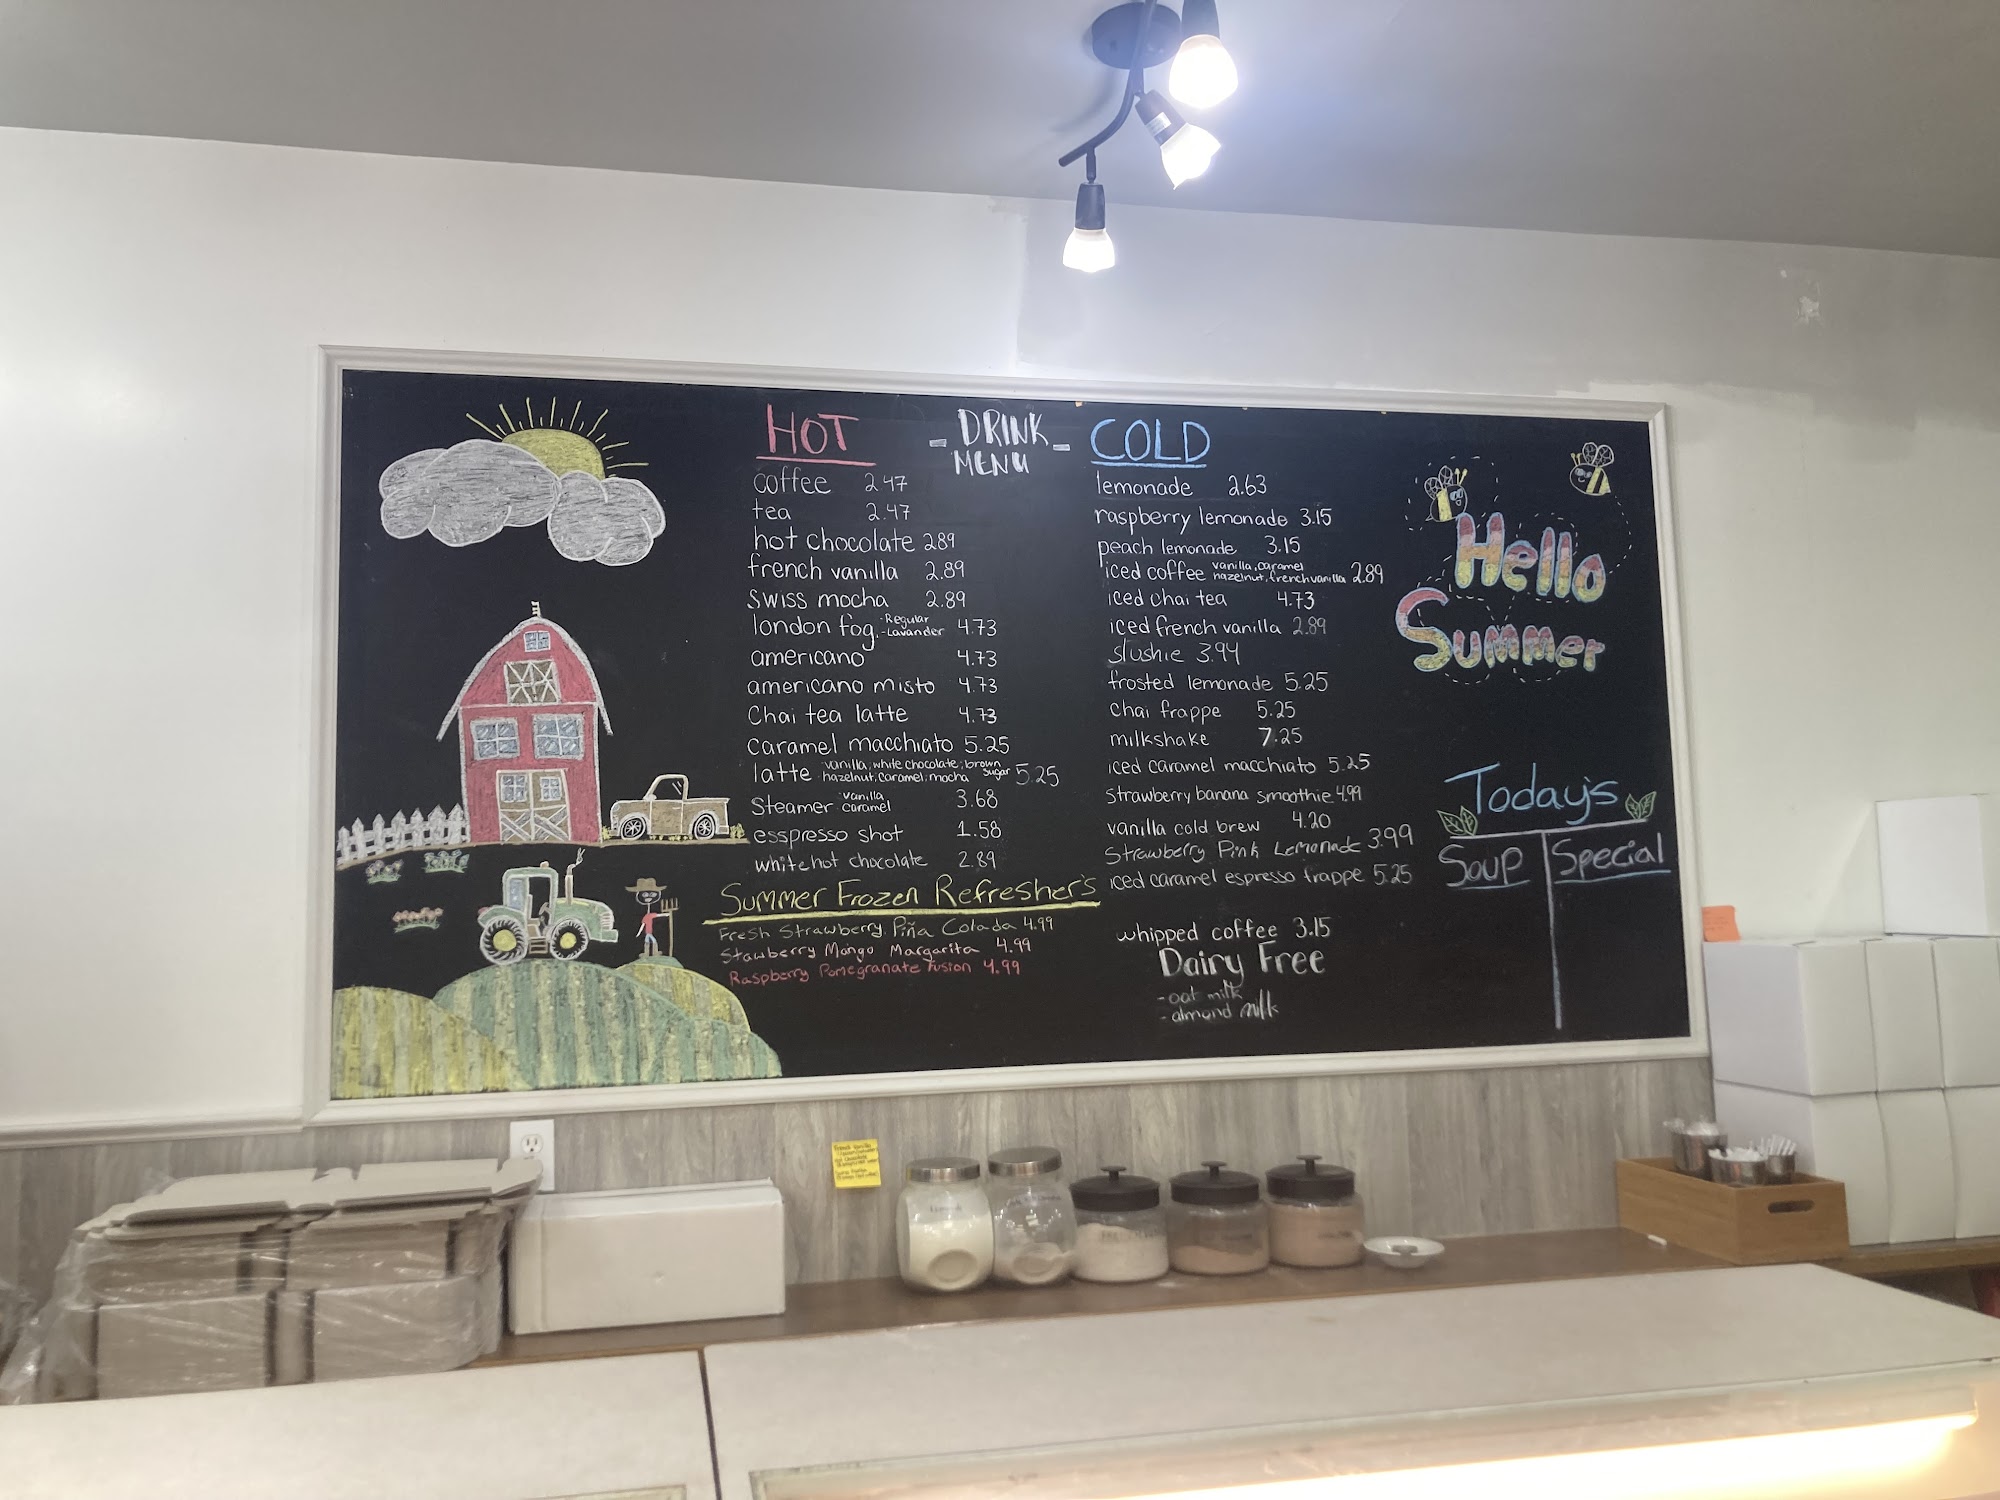 HOT
- DRINK -
MENU
coffee 2.47
tea 2.47
hot chocolate 2.89
french vanilla 2.89
swiss mocha 2.89
london fog -Regular
-Lavander 4.73
americano 4.73
americano misto 4.73
Chai tea latte 4.73
Caramel macchiato 5.25
latte vanilla, white chocolate, brown sugar
hazelnut, caramel, mocha 5.25
Steamer vanilla
caramel 3.68
esspresso shot 1.58
white hot chocolate 2.89
Summer Frozen Refresher's
Fresh Strawberry Piña Colada 4.99
Stawberry Mango Margarita 4.99
Raspberry Pomegranate Fusion 4.99
COLD
lemonade 2.63
raspberry lemonade 3.15
peach lemonade 3.15
iced coffee vanilla, caramel
hazelnut, french vanilla 2.89
iced chai tea 4.73
iced french vanilla 2.89
slushie 3.94
frosted lemonade 5.25
chai frappe 5.25
milkshake 7.25
iced caramel macchiato 5.25
strawberry banana smoothie 4.99
vanilla cold brew 4.20
Strawberry Pink Lemonade 3.99
iced caramel espresso frappe 5.25
whipped coffee 3.15
Dairy Free
- oat milk
- almond milk
Hello
Summer
Today's
Soup
Special